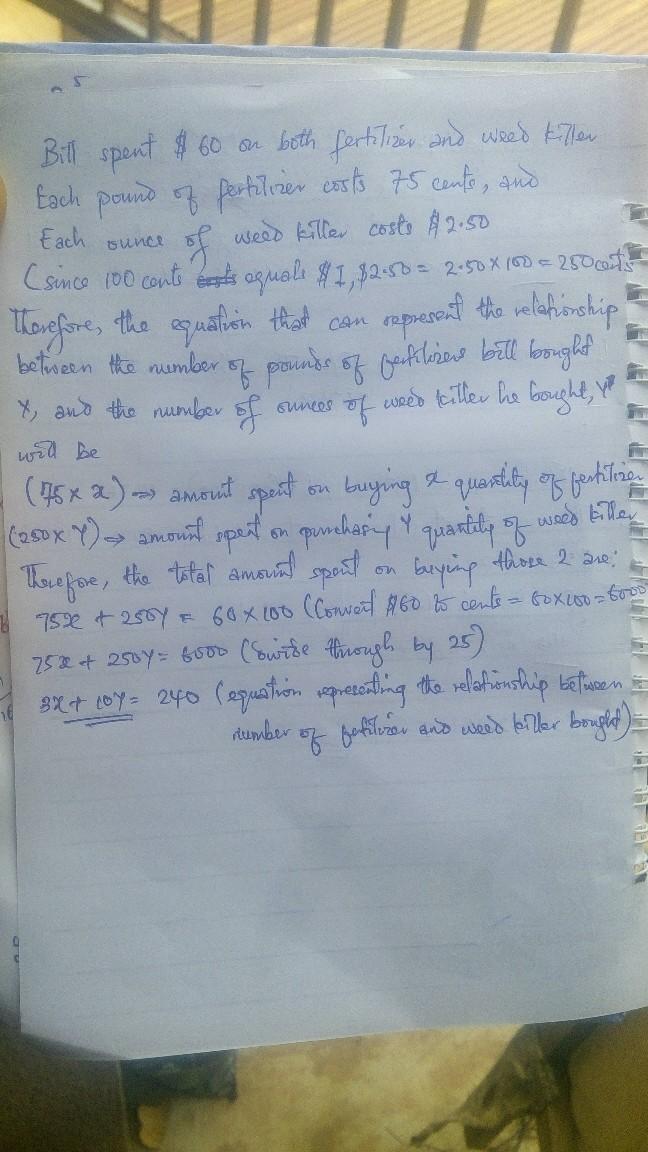 5
Bill spent $60 on both fertilizer and weed killer
Each pound of fertilizer costs 75 cents, and
Each ounce of weed killer costs $2.50
(since 100 cents equals $1, $2.50 = 2.50 x 100 = 250 cents
Therefore, the equation that can represent the relationship
between the number of pounds of fertilizers bill bought
X, and the number of ounces of weed killer he bought, Y
will be
(75 x x) => amount spent on buying x quantity of fertilizer
(250 x Y) => amount spent on purchasing Y quantity of weed killer
Therefore, the total amount spent on buying those 2 are:
75x + 250Y = 60 x 100 (Convert $60 to cents = 60x100=6000
75x + 250Y = 6000 (Divide through by 25)
3x + 10Y = 240 (equation representing the relationship between
number of fertilizer and weed killer bought)